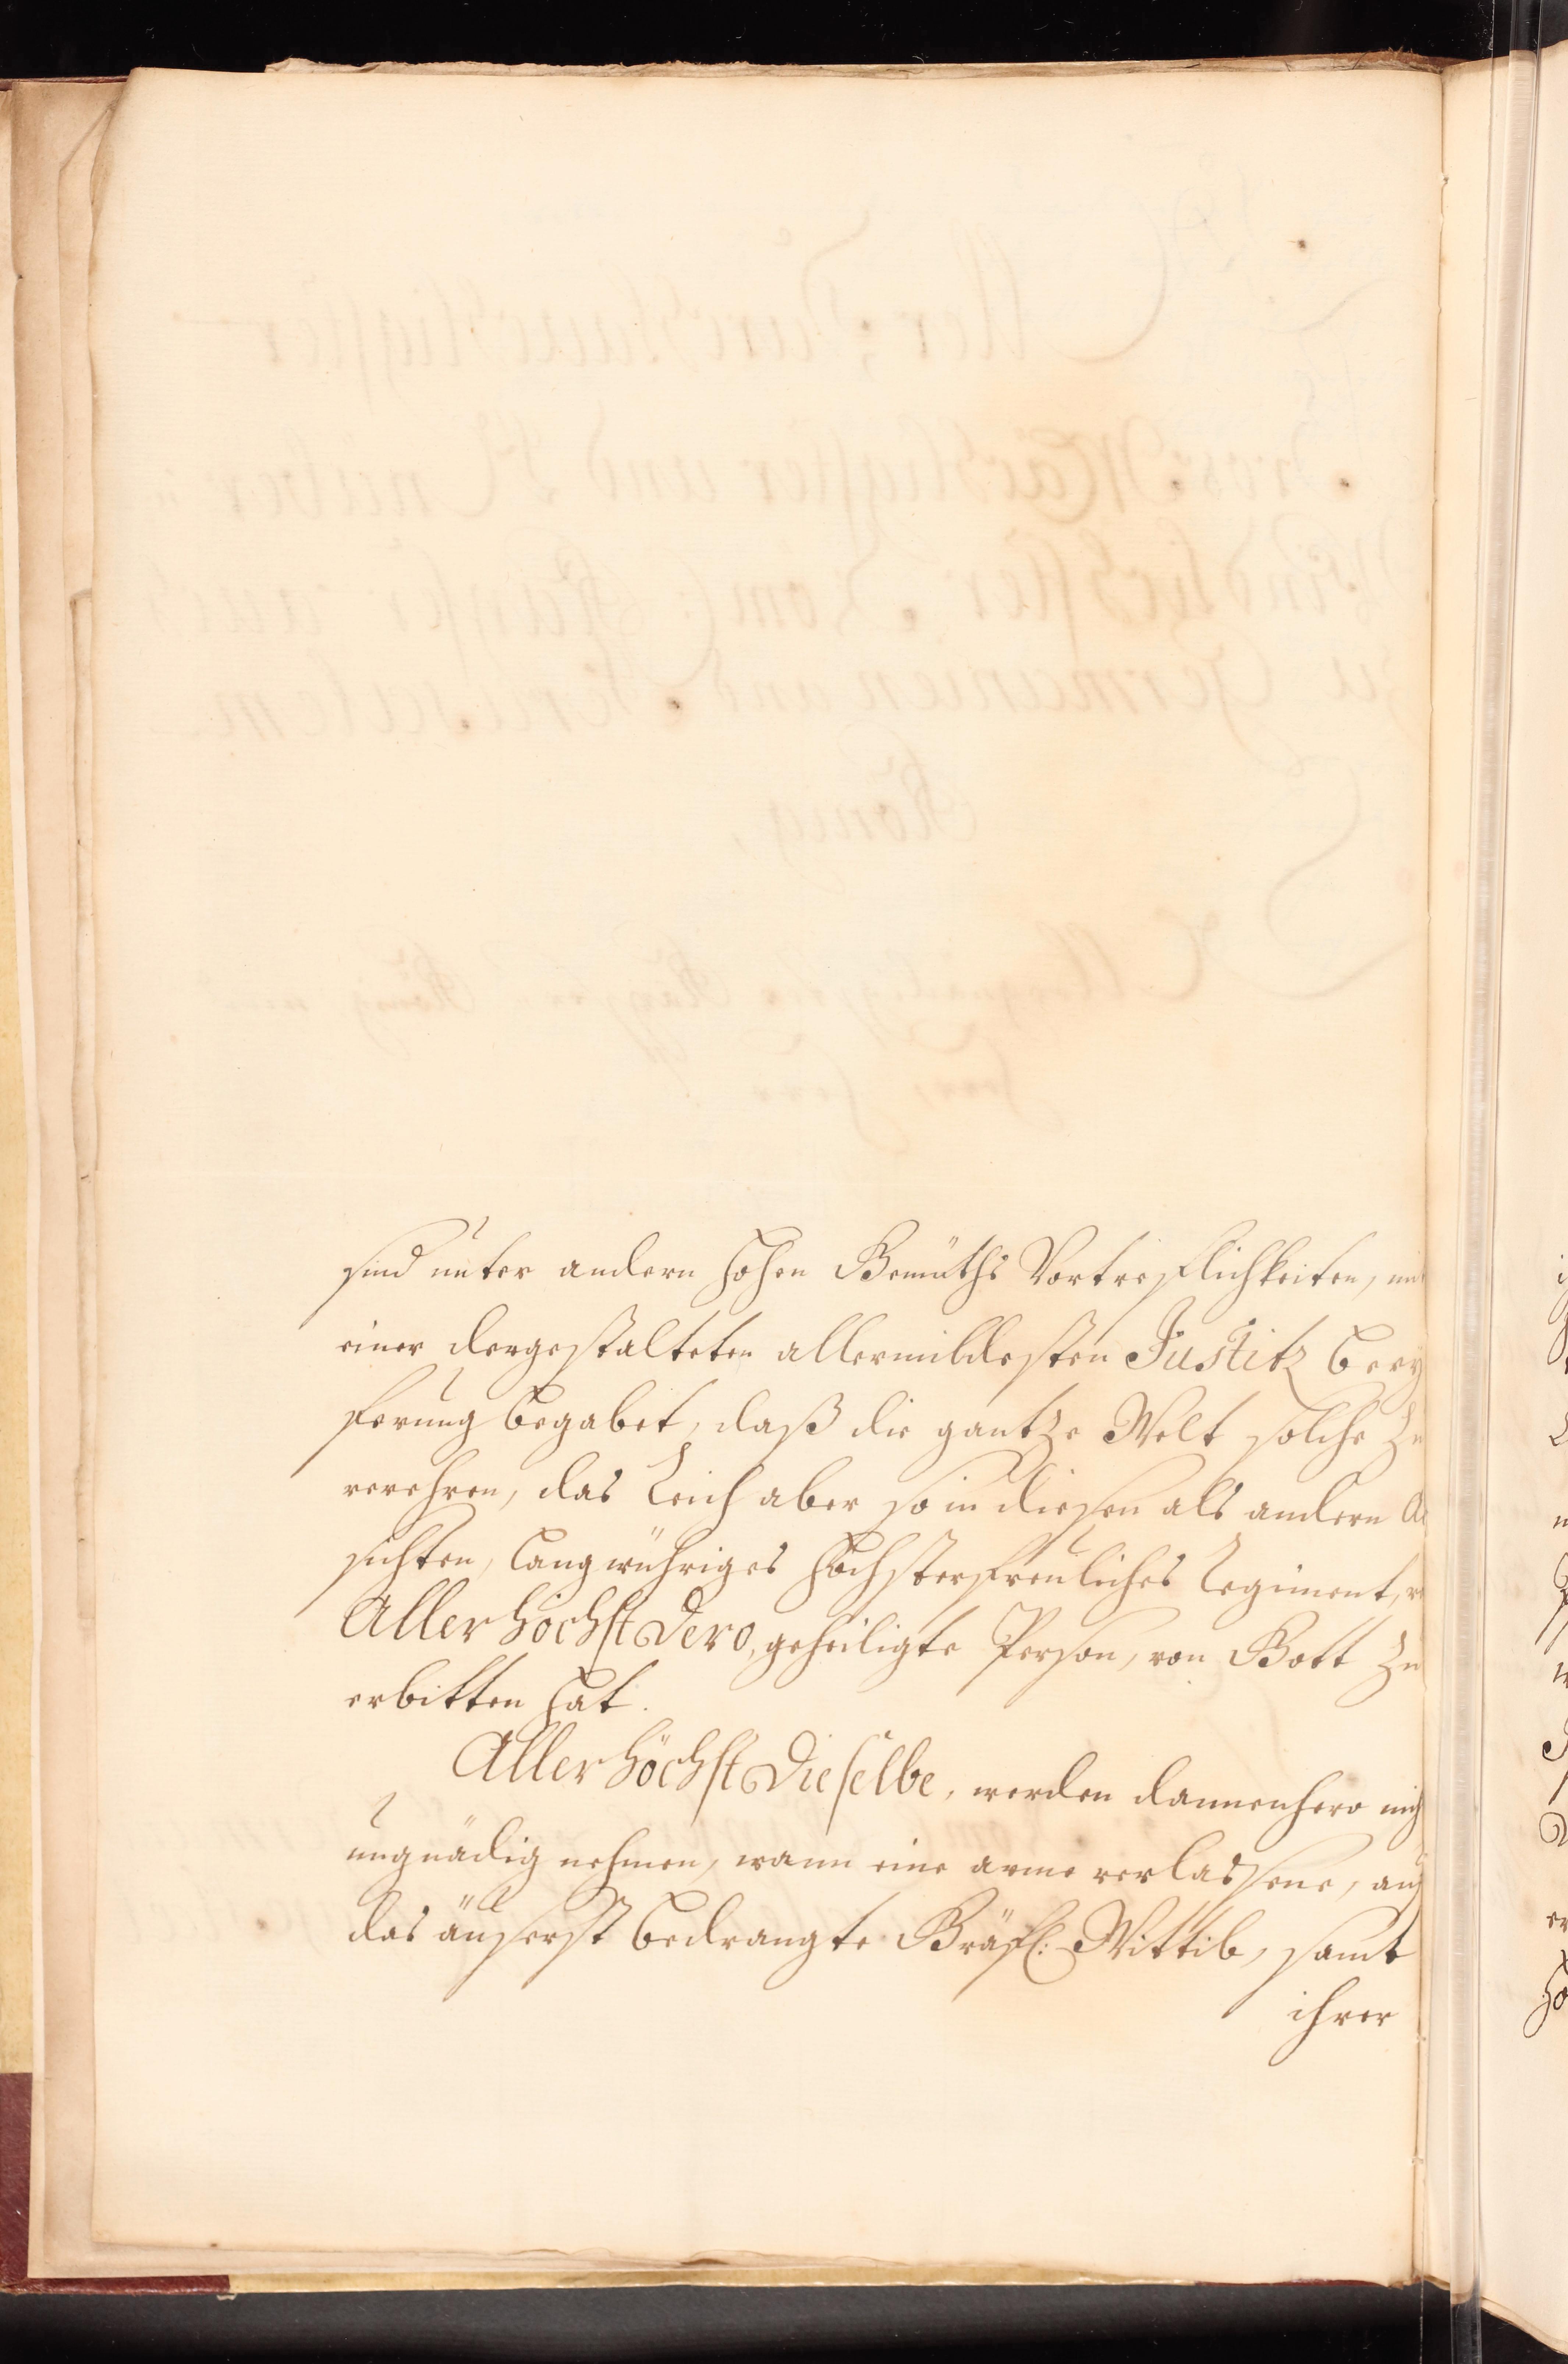 sind unter andern hohen Gemüths Vortreflichkeiten, mit
einer dergestalteten allermildesten Justitz Beey
ferung begabet, daß die gantze Welt solche zu
verehren, das Reich aber so in diesen als andern
sichten, langwühriges höchsterfreuliches Regiment,
Allerhöchst Dero, geheiligte Person, von Gott zu
erbitten hat.
Allerhöchst Dieselbe, werden dannenhero
ungnädig nehmen, wann eine arme verlassene,
das äuserst bedrangte Gräfl: Wittib, samt
ihrer